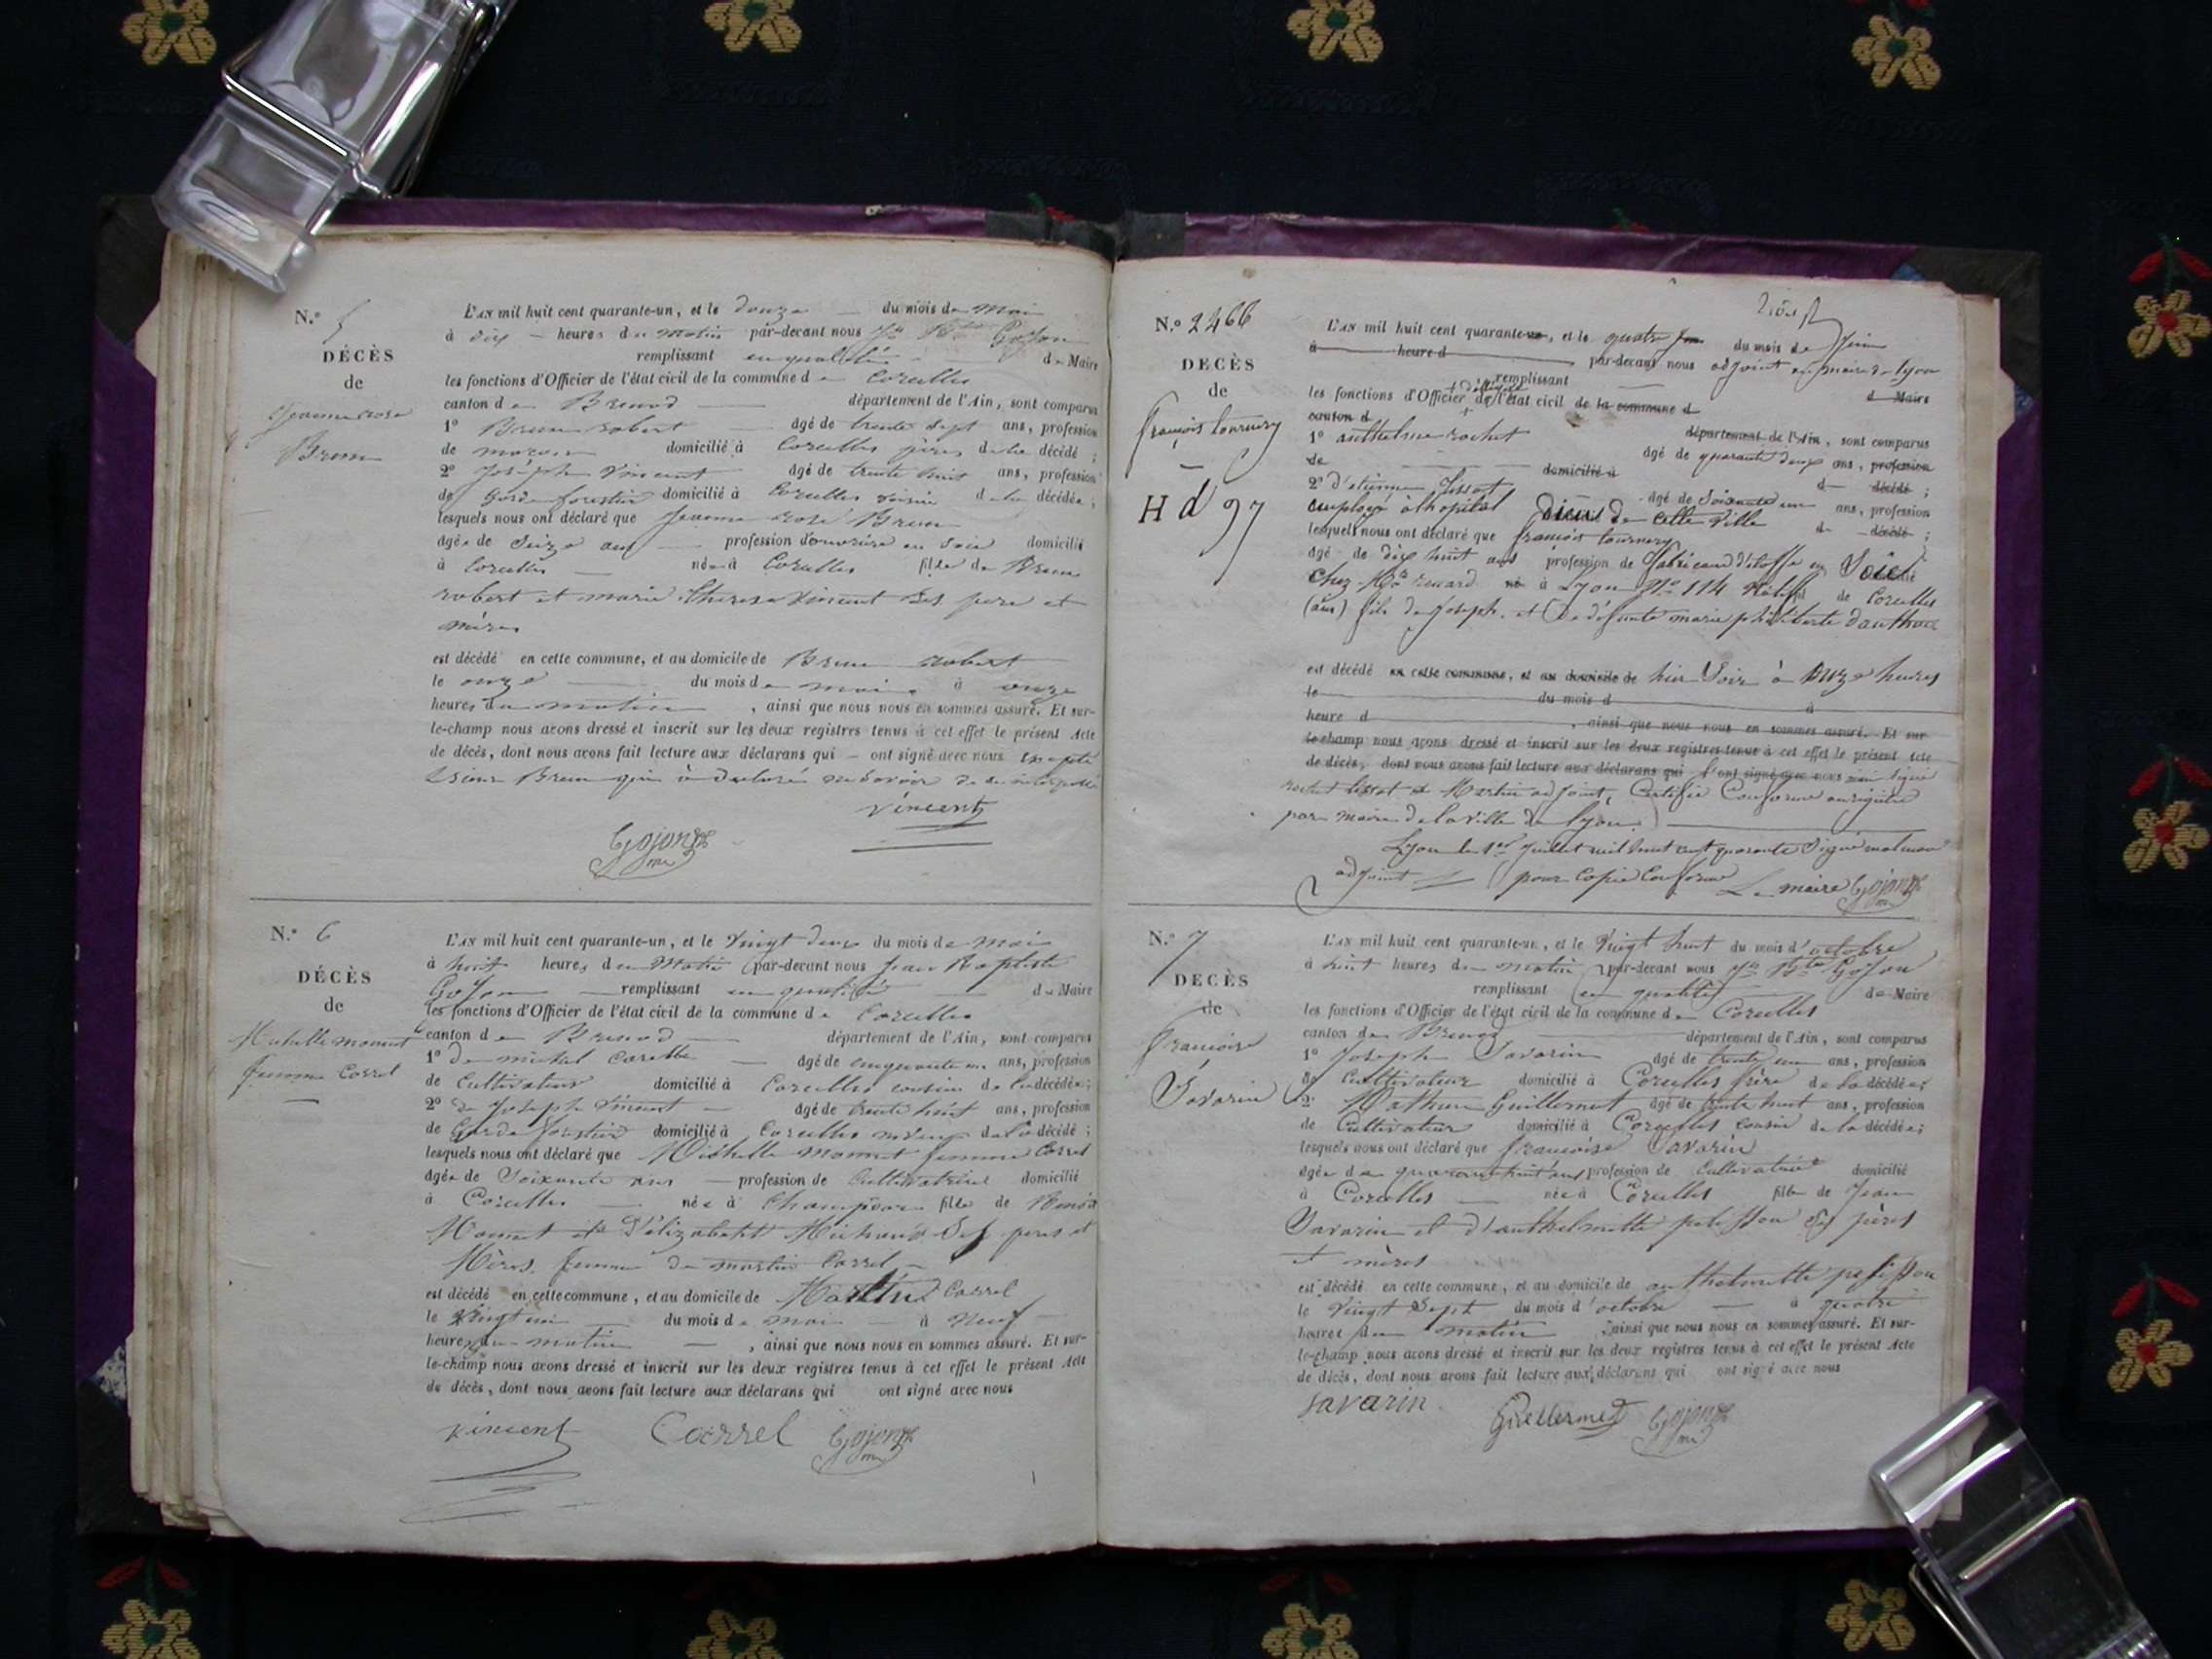 N.° 5
DÉCÈS
de
Jeanne rose
Brun
L'AN mil huit cent quarante-un, et le douze du mois de mai
à dix heures du matin par-devant nous Jn Bte Gojon
remplissant en qualité de Maire
les fonctions d'Officier de l'état civil de la commune de Corcelles
canton de Brenod département de l'Ain, sont comparus
1° Brun robert âgé de trente sept ans, profession
de maçon domicilié à Corcelles père de la décédé ;
2° Joseph Vincent âgé de trente huit ans, profession
de Garde forestier domicilié à Corcelles voisin de la décédée ;
lesquels nous ont déclaré que Jeanne rose Brun
âgée de Seize ans profession d'ouvrière en soie domicilié
à Corcelles née à Corcelles fille de Brun
robert et marie Therese Vincent Ses pere et
mères
est décédé en cette commune, et au domicile de Brun robert
le onze du mois de mai à onze
heures du matin , ainsi que nous nous en sommes assuré. Et sur-
le-champ nous avons dressé et inscrit sur les deux registres tenus à cet effet le présent Acte
de décès, dont nous avons fait lecture aux déclarans qui ont signé avec nous excepté
Brun qui à declaré
Vincent
Gojon
N.° 6
DÉCÈS
de
Michelle monnet
femme Carrel
L'AN mil huit cent quarante-un, et le Vingt deux du mois de Mai
à huit heures du Matin par-devant nous Jean Baptiste
Gojon remplissant en qualité de Maire
les fonctions d'Officier de l'état civil de la commune de Corcelles
canton de Brenod département de l'Ain, sont comparus
1° De michel Carelle âgé de cinquante un ans, profession
de Cultivateur domicilié à Corcelles cousin de la décédée ;
2° de Joseph Vincent âgé de trente huit ans, profession
de Garde forestier domicilié à Corcelles de la décédé ;
lesquels nous ont déclaré que Michelle Monnet femme Carrel
âgée de Soixante ans profession de Cultivatrice domicilié
à Corcelles née à Champdor fille de Benoit
Monnet et D'élizabeth Michaud Ses peres et
Mères. femme de martin Carrel
est décédé en cette commune, et au domicile de Martin Carrel
le Vingt un du mois de mai à Neuf
heures du matin , ainsi que nous nous en sommes assuré. Et sur-
le-champ nous avons dressé et inscrit sur les deux registres tenus à cet effet le présent Acte
de décès, dont nous avons fait lecture aux déclarans qui ont signé avec nous
Vincent Carrel Gojon
N.° 2466
DÉCÈS
de
françois tournery
H d 97
L'AN mil huit cent quarante-un, et le quatre Juin du mois de Juin
à heure d par-devant nous adjoint au maire de lyon
remplissant d Maire
les fonctions d'Officier délégué de l'état civil de la commune d
canton d département de l'Ain, sont comparus
1° anthelme rochet âgé de quarante deux ans, profession
de domicilié à d décédé ;
2° d'etienne Tissot âgé de Soixante un ans, profession
employé à lhopital Dieu de cette Ville d décédé ;
lesquels nous ont déclaré que françois tournery
âgé de dix huit ans profession de fabricant d'étoffe en Soie
Chez Mr renard né à Lyon No 114 Natif de Corcelles
(ain) fils de Joseph. et De défunte marie philiberte
est décédé en cette commune, et au domicile de hier Soir à onze heures
le du mois d à
heure d , ainsi que nous nous en sommes assuré. Et sur
le-champ nous avons dressé et inscrit sur les deux registres tenus à cet effet le présent Acte
de décès, dont nous avons fait lecture aux déclarans qui ont signé avec nous Signé
rochet tissot et Martin adjoint, Certifié Conforme
par maire de la ville de lyon.
Lyon le 1er Juillet mil huit cent quarante Signé
adjoint pour Copie Conforme Le maire Gojon
N.° 7
DÉCÈS
de
françoise
Savarin
L'AN mil huit cent quarante-un, et le Vingt huit du mois d'octobre
à huit heures du matin par-devant nous Jn Bte Gojon
remplissant en qualité de Maire
les fonctions d'Officier de l'état civil de la commune de Corcelles
canton de Brenod département de l'Ain, sont comparus
1° Joseph Savarin âgé de trente un ans, profession
de Cultivateur domicilié à Corcelles frère de la décédée ;
2° Mathieu Guillermet âgé de trente huit ans, profession
de Cultivateur domicilié à Corcelles cousin de la décédée ;
lesquels nous ont déclaré que françoise Savarin
âgée de quarante huit ans profession de Cultivatrice domicilié
à Corcelles née à Corcelles fille de Jean
Savarin et d'anthelmette pelisson Ses pères
et mères
est décédé en cette commune, et au domicile de anthelmette pelisson
le Vingt Sept du mois d'octobre à quatre
heures du matin , ainsi que nous nous en sommes assuré. Et sur-
le-champ nous avons dressé et inscrit sur les deux registres tenus à cet effet le présent Acte
de décès, dont nous avons fait lecture aux déclarans qui ont signé avec nous
Savarin Guillermet Gojon